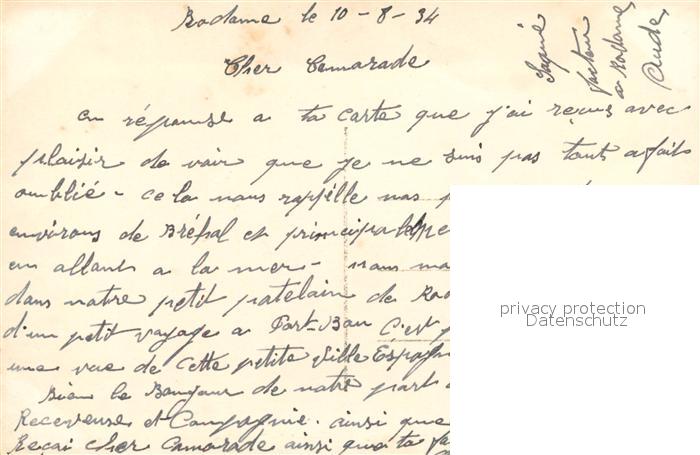 Rodome le 10-8-34
Cher Camarade
en réponse a ta carte que j'ai reçus avec
plaisir de voir que je ne suis pas tout afait
oublié - ce la nous rappélle nos
environs de Bréhal et principalepe
en allant a la mer - nous
dans notre petit patelain de
d'un petit voyage a Port-Bou C'est
une vue de cette petite ville Espagn
Bien le Bonjour de notre part
Receveuse et Compagnie. ainsi que
Reçoi cher Camarade ainsi que ta
facteur
a Rodome
Aude
privacy protection
Datenschutz